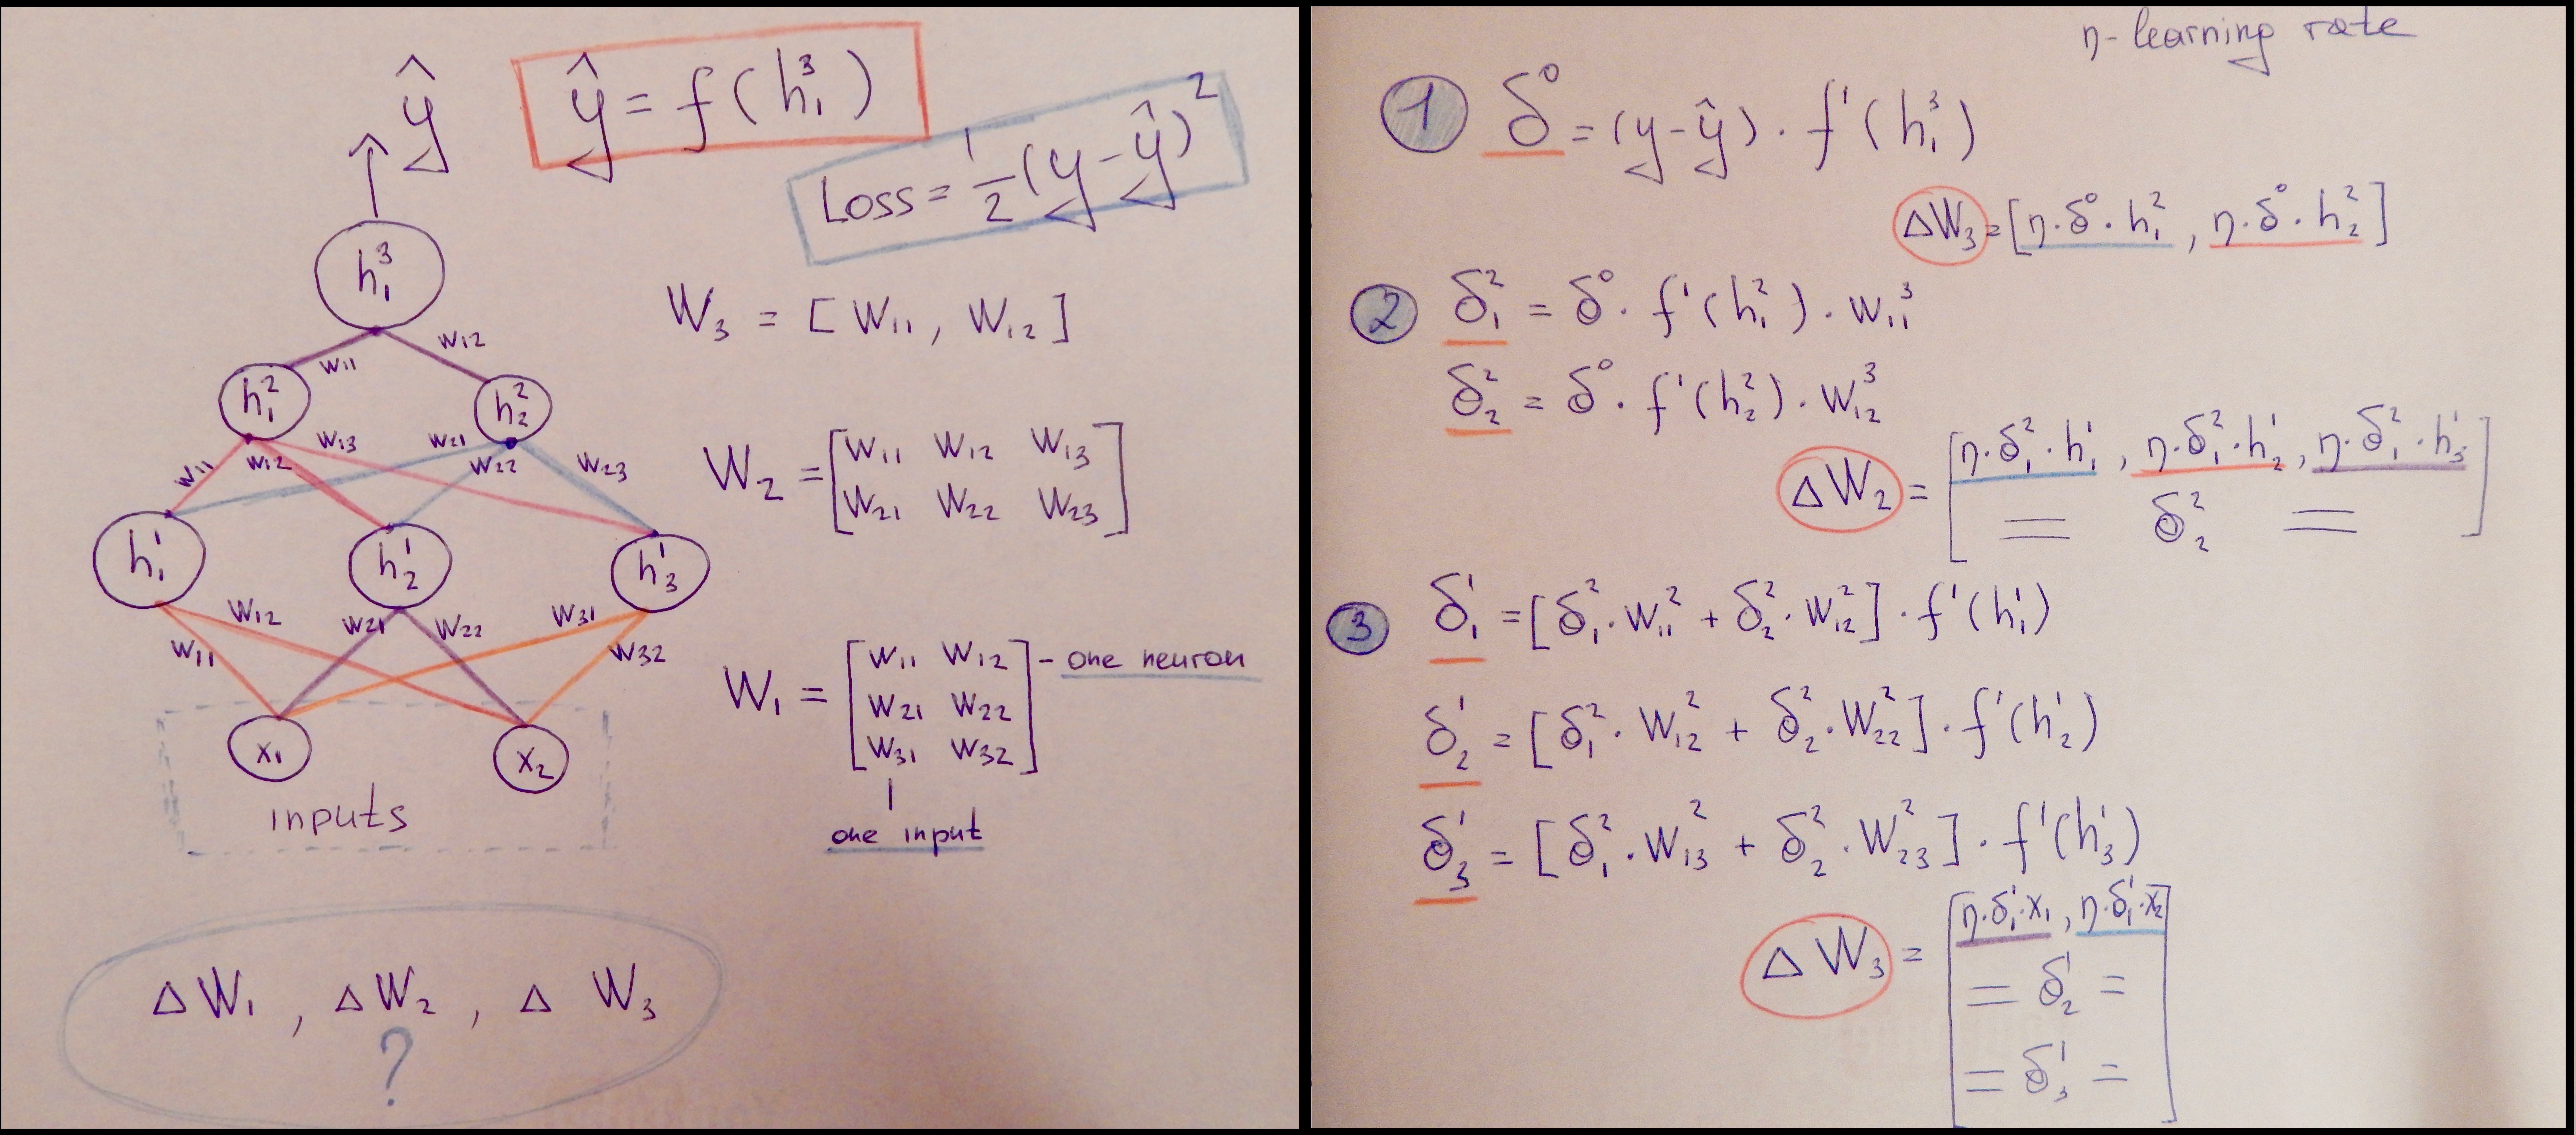 ŷ
ŷ = f(h₁³)
Loss = ½(y-ŷ)²
h₁³
W₃ = [W₁₁, W₁₂]
w₁₁ w₁₂
h₁² h₂²
w₁₁ w₁₂ w₁₃ w₂₁ w₂₂ w₂₃
W₂ = [W₁₁ W₁₂ W₁₃
W₂₁ W₂₂ W₂₃]
h₁¹ h₂¹ h₃¹
w₁₁ w₁₂ w₂₁ w₂₂ w₃₁ w₃₂
W₁ = [W₁₁ W₁₂
W₂₁ W₂₂
W₃₁ W₃₂]
- one neuron
one input
x₁ x₂
inputs
ΔW₁, ΔW₂, ΔW₃
?
η- learning rate
1 δ⁰ = (y-ŷ)·f'(h₁³)
ΔW₃ = [η·δ⁰·h₁², η·δ⁰·h₂²]
2 δ₁² = δ⁰·f'(h₁²)·W₁₁³
δ₂² = δ⁰·f'(h₂²)·W₁₂³
ΔW₂ = [η·δ₁²·h₁¹, η·δ₁²·h₂¹, η·δ₁²·h₃¹
= δ₂² =]
3 δ₁¹ = [δ₁²·W₁₁² + δ₂²·W₁₂²]·f'(h₁¹)
δ₂¹ = [δ₁²·W₁₂² + δ₂²·W₂₂²]·f'(h₂¹)
δ₃¹ = [δ₁²·W₁₃² + δ₂²·W₂₃²]·f'(h₃¹)
ΔW₃ = [η·δ₁¹·x₁, η·δ₁¹·x₂
= δ₂¹ =
= δ₃¹ =]